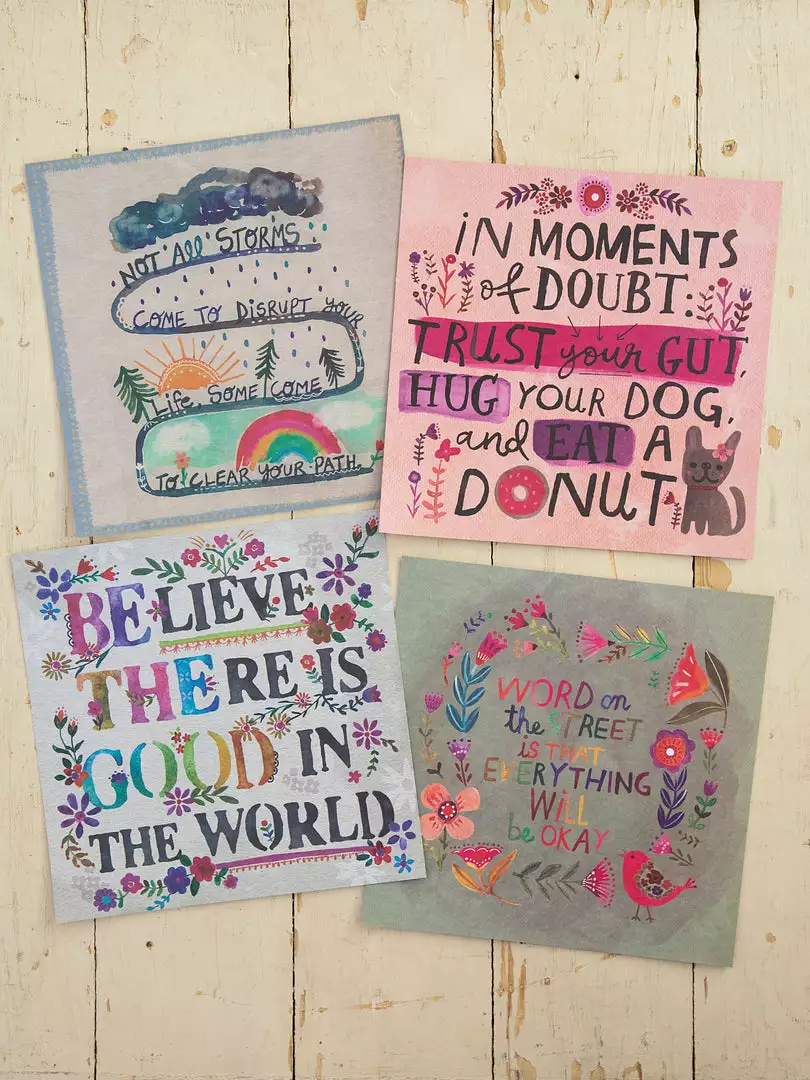 NOT All STORMS
COME TO DISRUPT YOUR
Life, SOME COME
TO CLEAR YOUR PATH.
IN MOMENTS
of DOUBT:
TRUST your GUT,
HUG YOUR DOG,
and EAT A
DONUT
BELIEVE
THERE IS
GOOD IN
THE WORLD
WORD on
the STREET
is THAT
EVERYTHING
WiLL
be OKAY